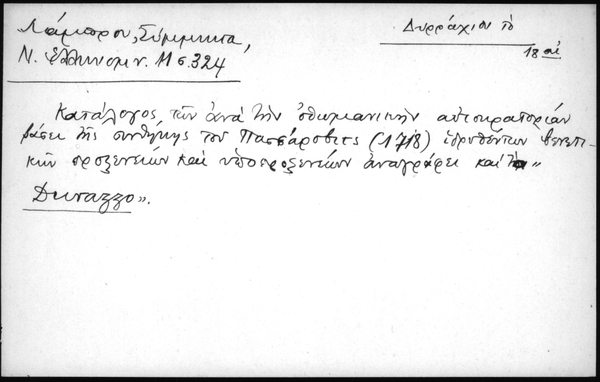 Λάμπρου, Σύμμικτα,
Ν. Ἑλληνομν. 11 σ. 324
Δυρράχιον τὸ
18 αἰ
Κατάλογος τῶν ἀνὰ τὴν ὀθωμανικὴν αὐτοκρατορίαν
βάσει τῆς συνθήκης τοῦ Πασσάροβιτς (1718) ἱδρυθέντων βενετι-
κῶν προξενείων καὶ ὑποπροξενείων ἀναγράφει καὶ τὸ "
Durazzo».